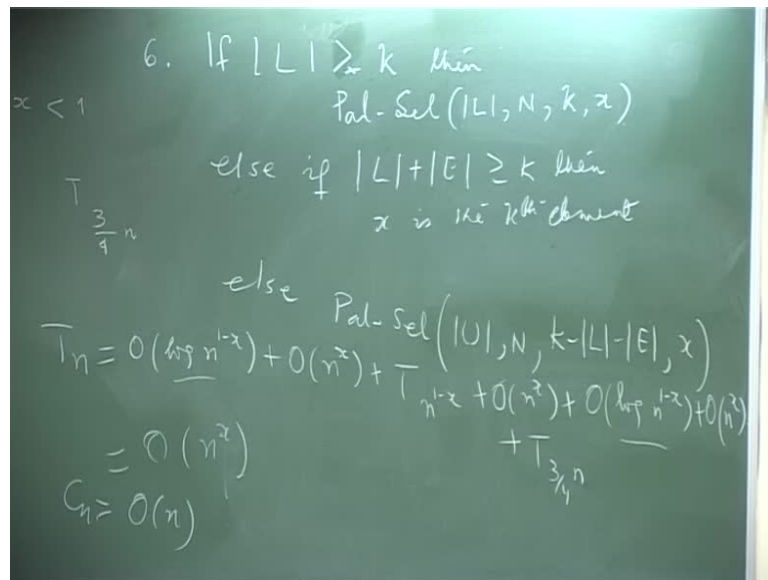 6. If |L| ≥ k then
x < 1
Pal-Sel(|L|, N, k, x)
else if |L|+|E| ≥ k then
x is the kth element
T 3/4 n
else
Pal-Sel(|U|, N, k-|L|-|E|, x)
Tn = O(log n^{1-x}) + O(n^x) + T_{n^{1-x}} + O(n^x) + O(log n^{1-x}) + O(n^x)
+ T_{3/4 n}
= O(n^x)
Cn = O(n)